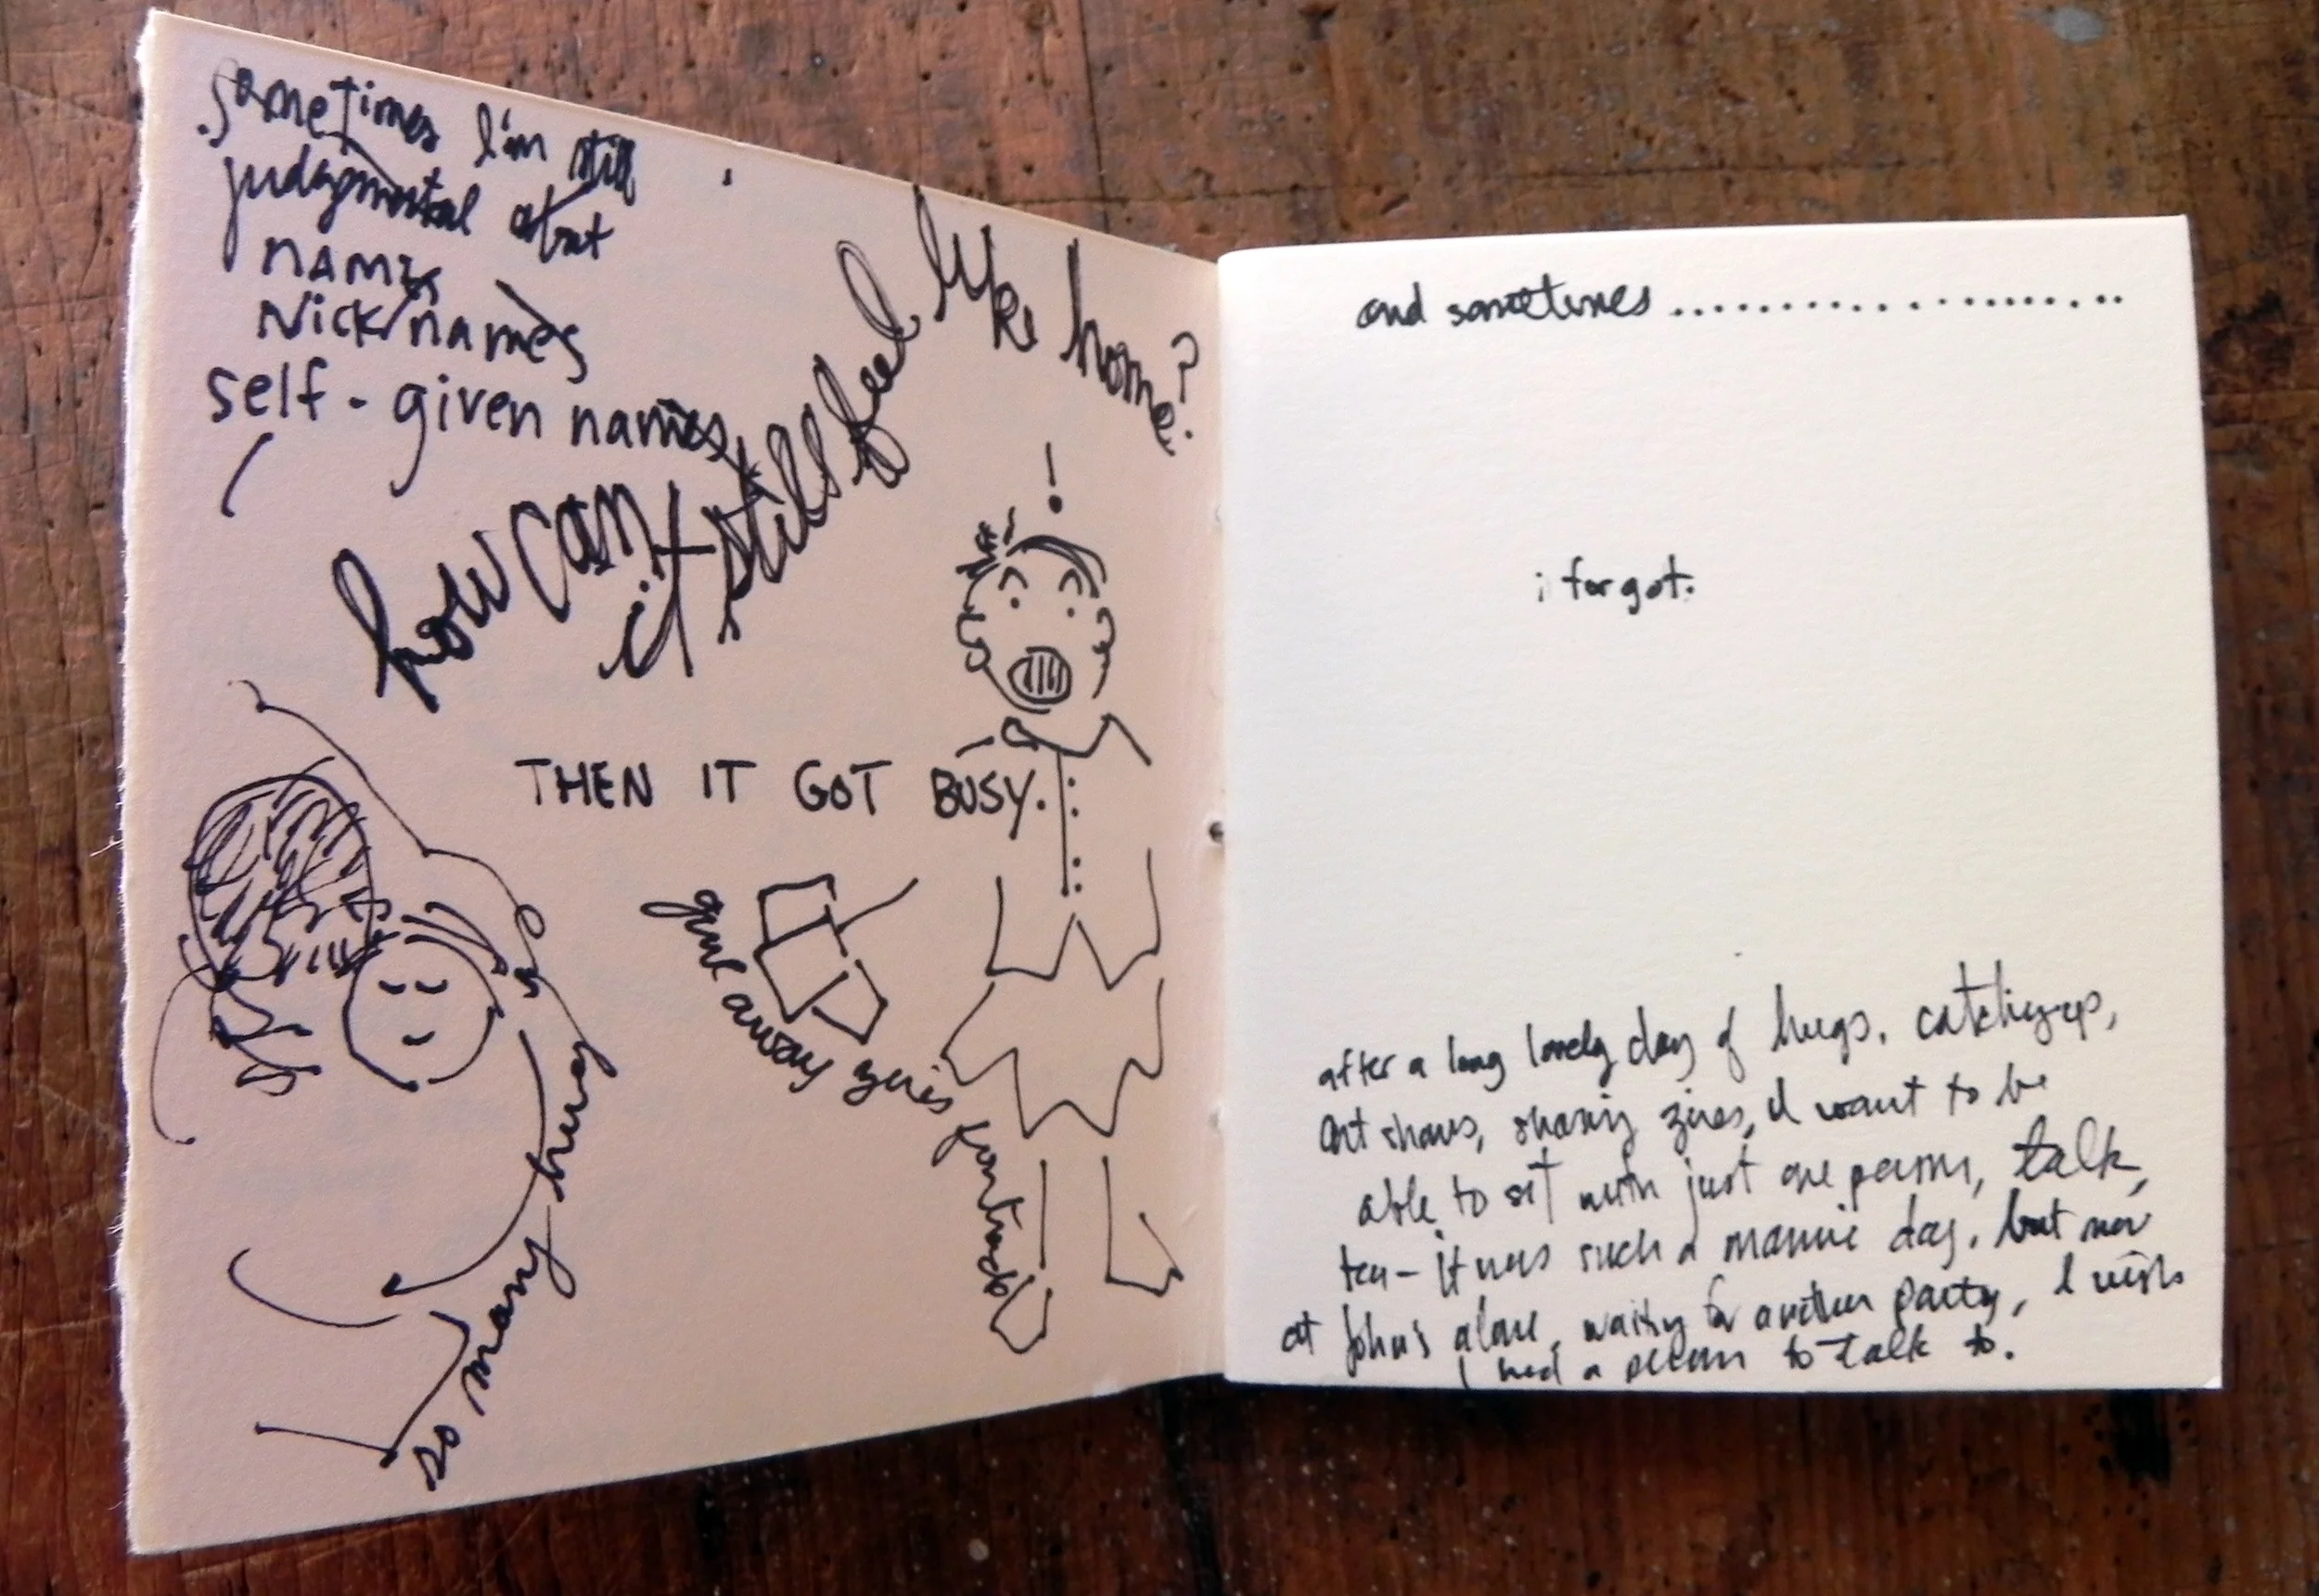 sometimes I'm still
judgmental about
names
Nicknames
self-given names
how can it still feel like home?
!
THEN IT GOT BUSY.
gave away zines for trade
so many hugs
and sometimes......................
i forgot.
after a long lovely day of hugs, catching-up,
art shows, sharing zines, I want to be
able to sit with just one person, talk,
tea - it was such a manic day. but now
at John's alone, waiting for another party, I wish
I had a person to talk to.